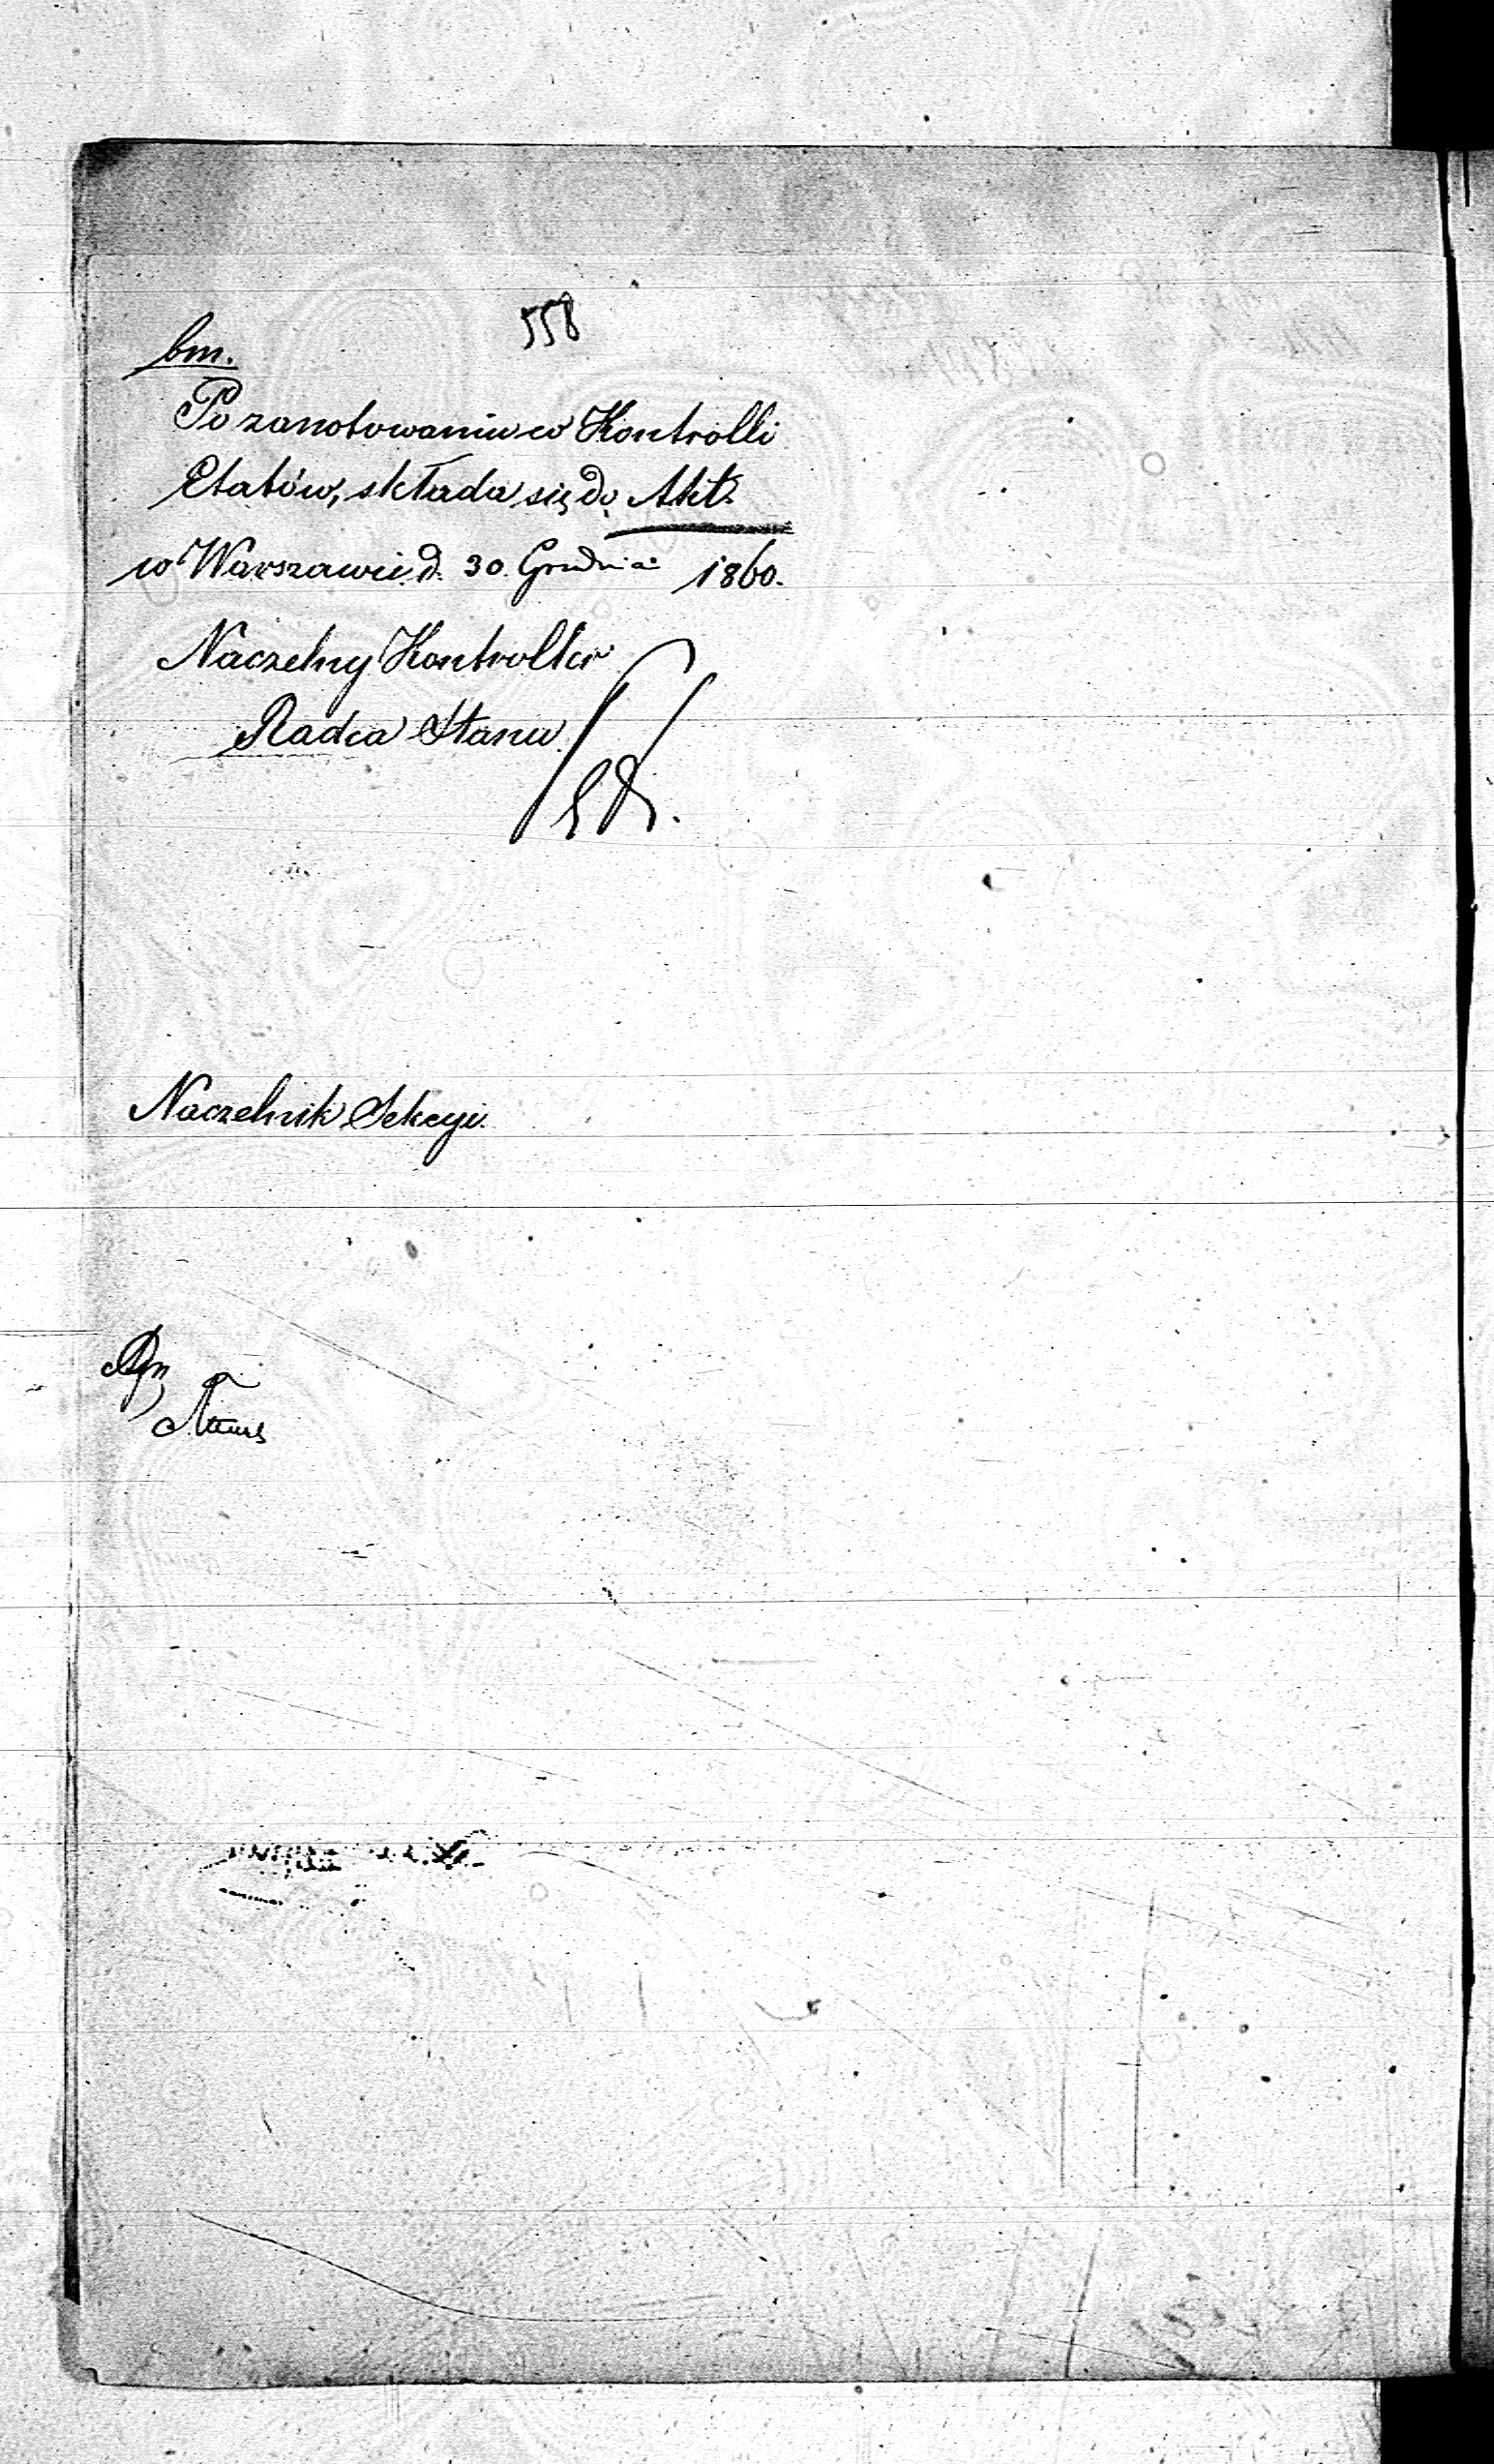 558
bm.
Po zanotowaniu w Kontrolli
Etatów, składa się do Akt.
w Warszawie d. 30. Grudnia 1860.
Naczelny Kontroller
Radca Stanu
Naczelnik Sekcyi.